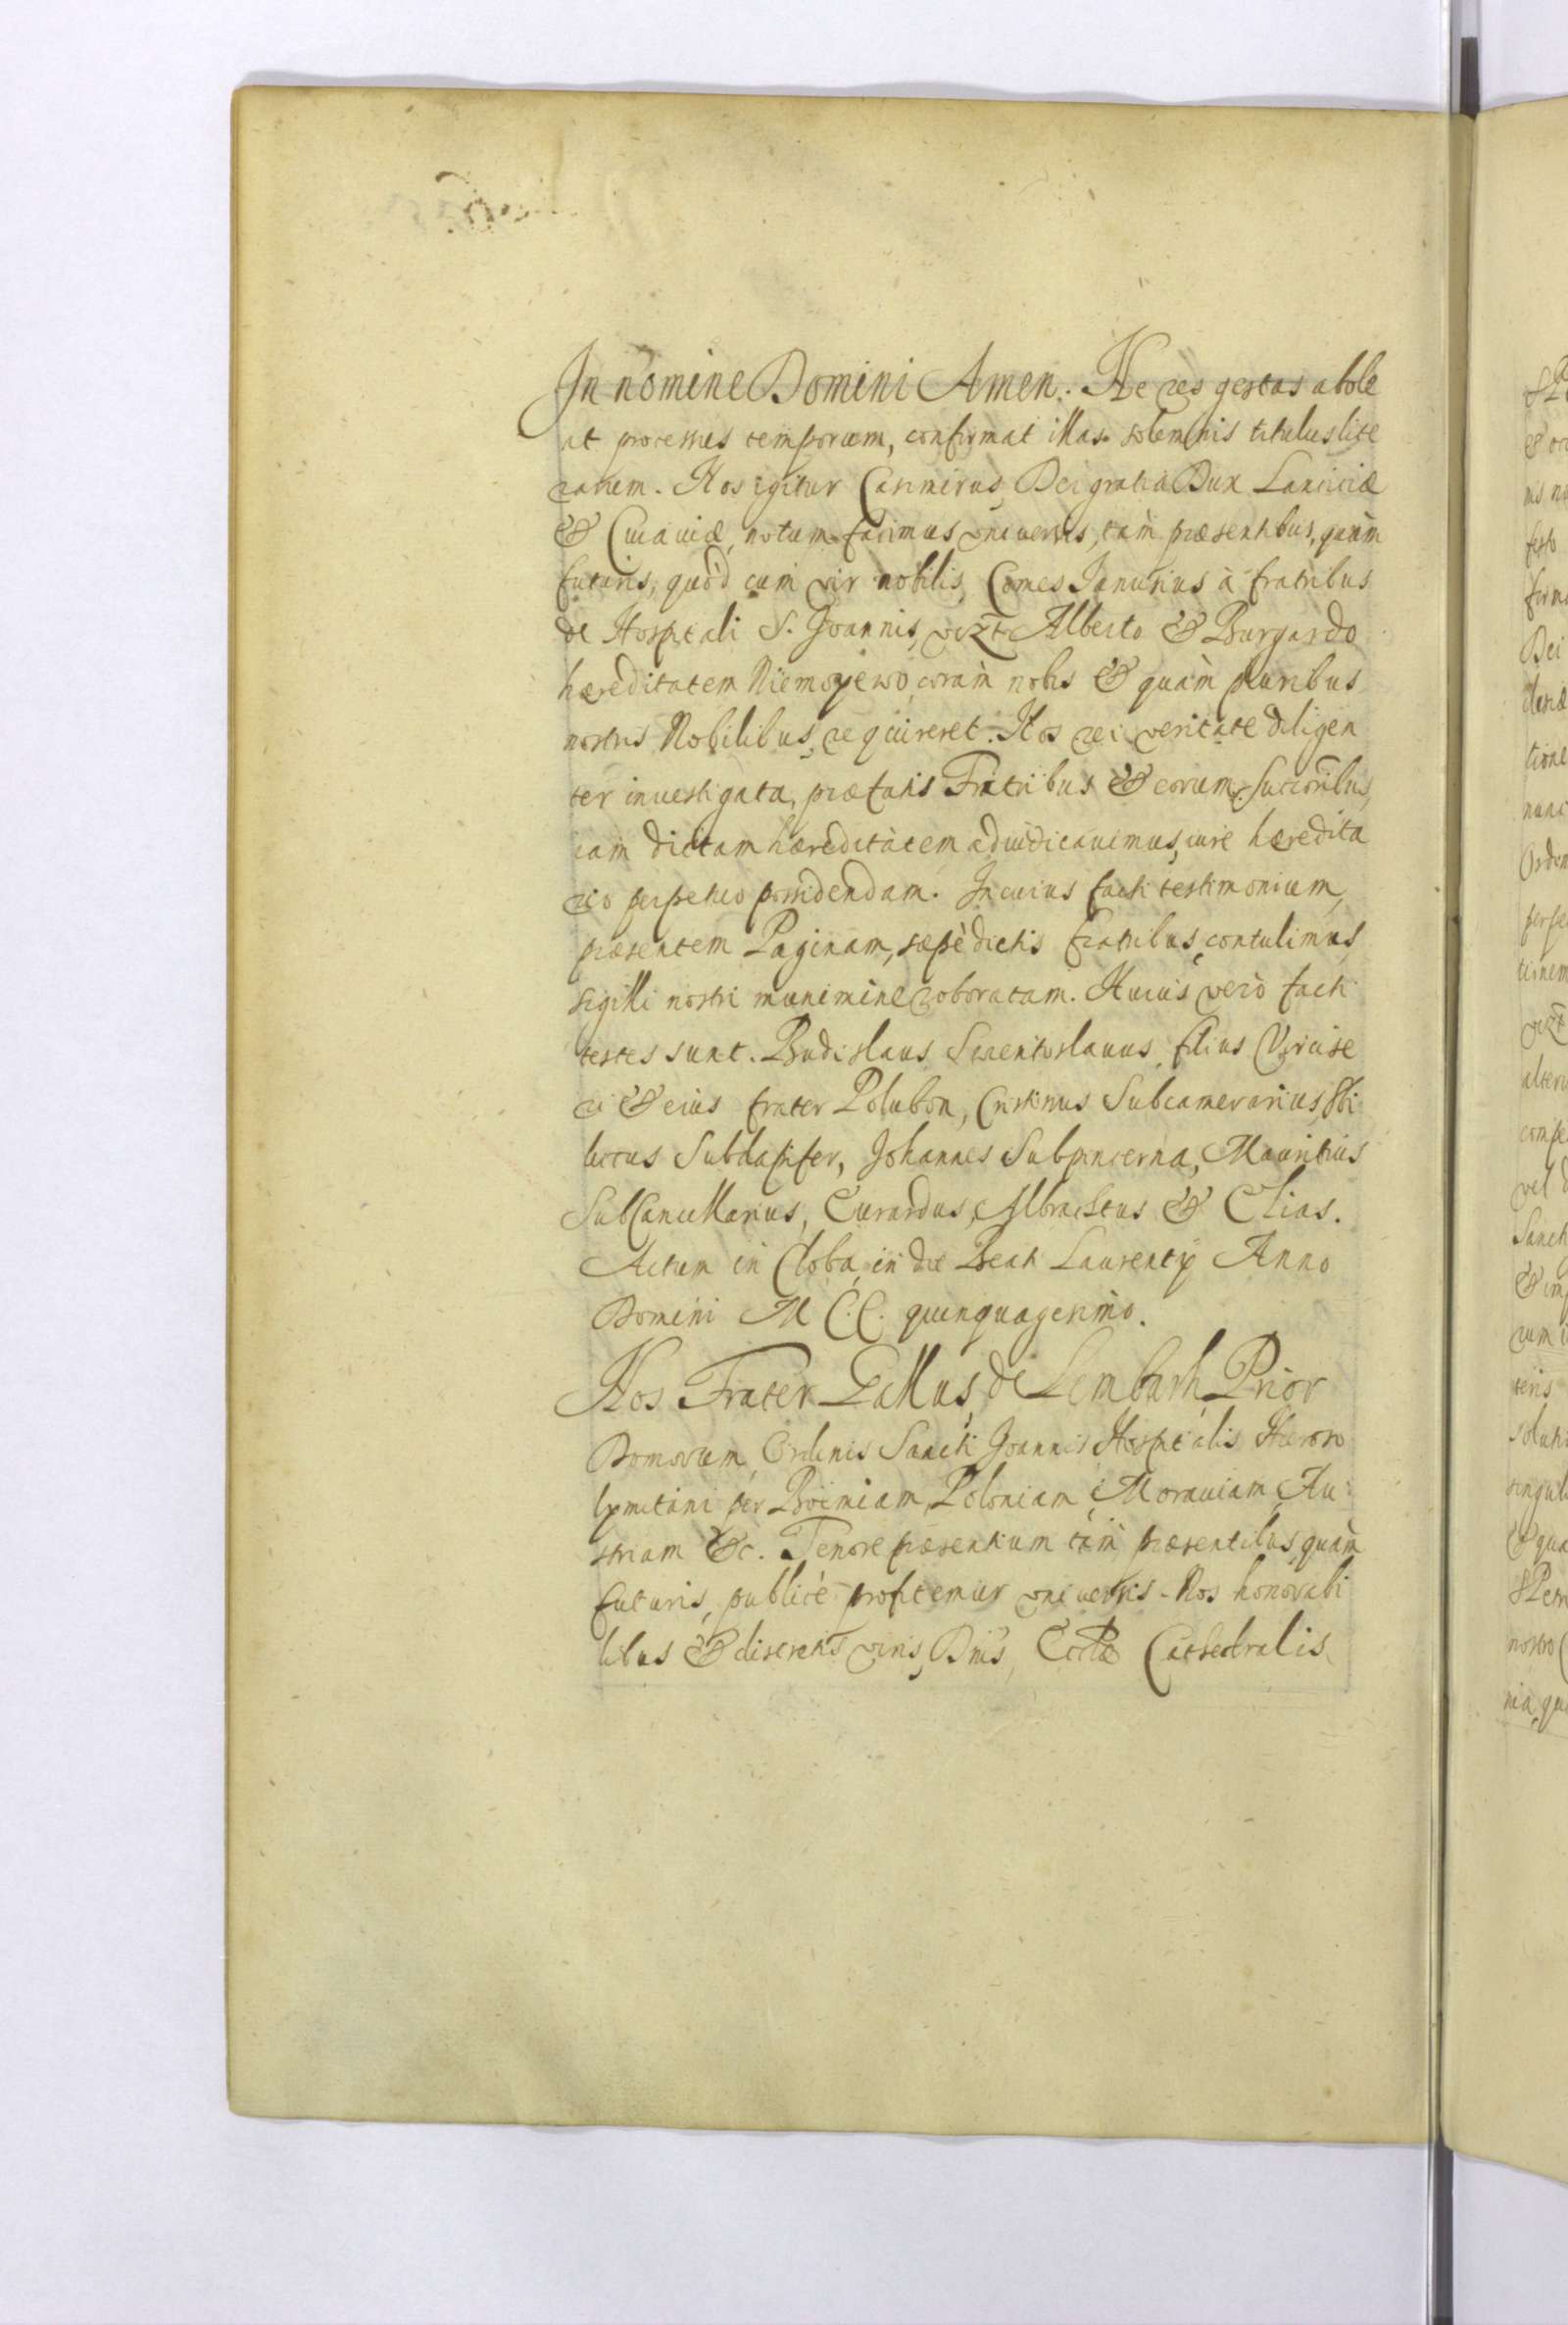 In nomine Domini Amen. Ne res gestas abole
at processus temporum, confirmat illas solemnis titulus lite
rarum. Nos igitur Casimirus, Dei gratia Dux Lanciciæ
& Cuiauiæ, notum facimus vniuersis, tàm præsentibus, quàm
futuris, quòd cum vir nobilis, Comes Ianusius à fratribus
de Hospitali S. Joannis, vizt Alberto & Burgardo
hæreditatem Niemoyewo, coràm nobis & quàm pluribus
nostris Nobilibus, requireret. Nos rei veritate diligen
ter inuestigata, præfatis Fratribus & eorum Successoribus,
iam dictam hæreditatem adiudicauimus, iure hæredita
rio perpetuo possidendam. In cuius facti testimonium,
præsentem Paginam, sæpè dictis fratribus, contulimus,
sigilli nostri munimine roboratam. Huius verò facti
testes sunt. Budislaus Swentoslauus, filius
ci & eius frater Polubon, Cristinus Subcamerarius,
Subdapifer, Johannes Subpincerna, Mauritius
SubCancellarius, Eurardus, Albrachtus & Elias.
Actum in Cloba, in die Beati Laurentij Anno
Domini M C.C. quinquagesimo.
Nos Frater Gallus, de Lembarh, Prior
Domorum, Ordinis Sancti Joannis, Hospitalis Hieroso
lymitani per Boemiam, Poloniam, Morauiam, Au
striam &c. Tenore præsentium tàm præsentibus, quàm
futuris, publicè profitemur vniuersis. Nos honorabi
libus & discretis viris, Dnis, Ecclæ Cathedralis